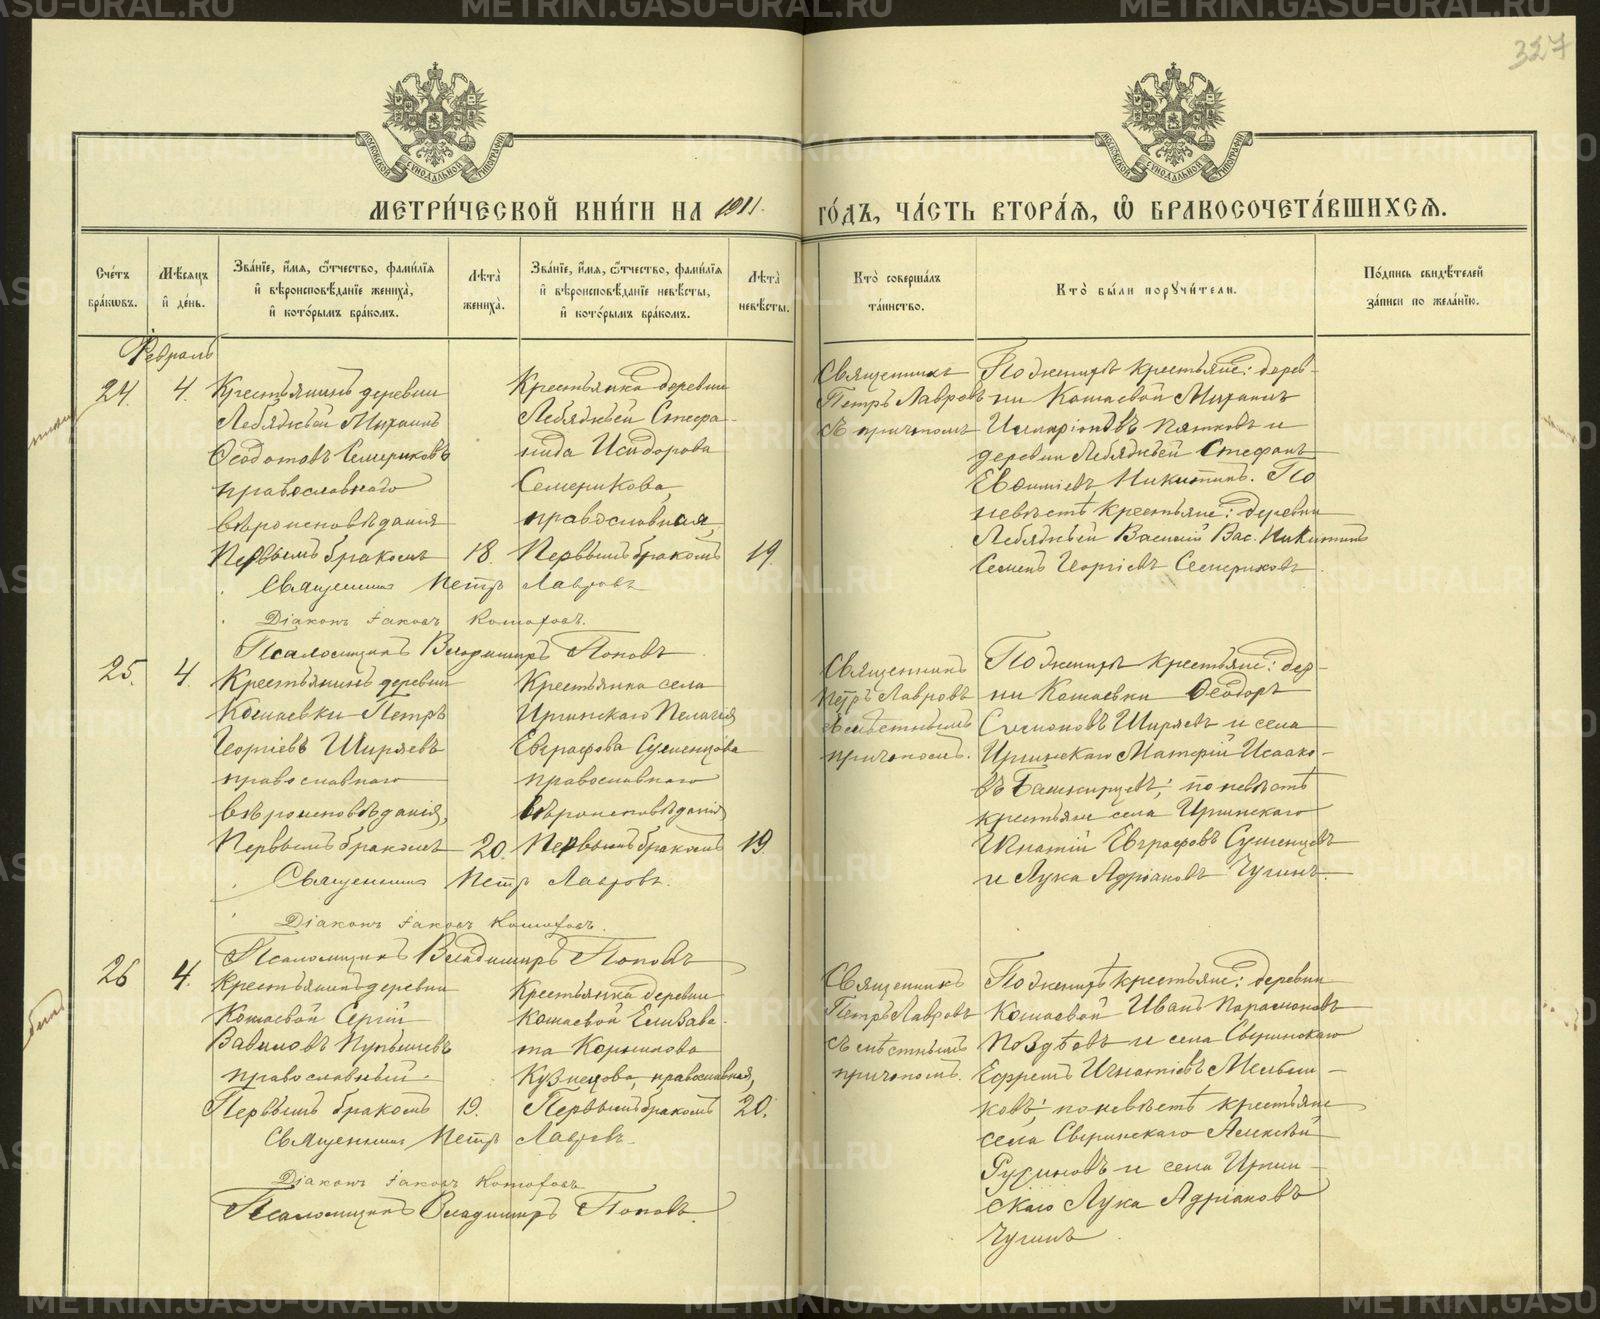 327
МОСКОВСКОЙ СУНОДАЛЬНОЙ ТИПОГРАФІИ
МОСКОВСКОЙ СУНОДАЛЬНОЙ ТИПОГРАФІИ
МЕТРИ́ЧЕСКОЙ КНИ́ГИ НА 1911. ГО́ДЪ, ЧА́СТЬ ВТОРА́Я, Ѡ БРАКОСОЧЕТА́ВШИХСЯ.
Сче́тъ бра́кѡвъ.
Мѣ́сяцъ и҆ де́нь.
Зва́нїе, и҆́мя, ѻ҆́тчество, фами́лїя
и҆ вѣроисповѣ́данїе жениха̀,
и҆ кото́рымъ бра́комъ.
Лѣ́та жениха̀.
Зва́нїе, и҆́мя, ѻ҆́тчество, фами́лїя
и҆ вѣроисповѣ́данїе невѣ́сты,
и҆ кото́рымъ бра́комъ.
Лѣ́та невѣ́сты.
Кто̀ соверша́лъ та́инство.
Кто̀ бы́ли порꙋчи́тели.
По́дпись свидѣ́телей за́писи по жела́нїю.
Февраль
24. 4.
Крестьянинъ деревни
Лебяжьей Михаилъ
Ѳеодотовъ Семериковъ
православнаго
вѣроисповѣданія
Первымъ бракомъ
18.
Крестьянка деревни
Лебяжьей Стефа-
нида Исидорова
Семерикова,
православная,
Первымъ бракомъ
19.
Священникъ
Петръ Лавровъ
съ причтомъ
По женихѣ крестьяне: дерев-
ни Кошаевой Михаилъ
Иларіоновъ Пятковъ и
деревни Лебяжьей Стефанъ
Евѳиміевъ Никитинъ. По
невѣстѣ крестьяне: деревни
Лебяжьей Василій Вас. Никитинъ
Семенъ Георгіевъ Семериковъ
Священникъ Петръ Лавровъ
Діаконъ Іаковъ
Псаломщикъ Владимиръ Поповъ
25. 4.
Крестьянинъ деревни
Кошаевки Петръ
Георгіевъ Ширяевъ
православнаго
вѣроисповѣданія,
Первымъ бракомъ
20.
Крестьянка села
Иргинскаго Пелагія
Евграфова Сушенцова
православнаго
вѣроисповѣданія
Первымъ бракомъ
19.
Священникъ
Петръ Лавровъ
съ мѣстнымъ
причтомъ.
По женихѣ крестьяне: дер-
ни Кошаевки Ѳеодоръ
Симоновъ Ширяевъ и села
Иргинскаго Матѳій Исаако-
въ Башкирцевъ; по невѣстѣ
крестьяне села Иргинскаго
Игнатій Евграфовъ Сушенцевъ
и Лука Адріановъ Чугинъ.
Священникъ Петръ Лавровъ.
Діаконъ Іаковъ
Псаломщикъ Владимиръ Поповъ
26 4.
Крестьянинъ деревни
Кошаевой Сергій
Вавиловъ Пупышевъ
православный.
Первымъ бракомъ
19.
Крестьянка деревни
Кошаевой Елизаве-
та Корнилова
Кузнецова, православная,
Первымъ бракомъ
20.
Священникъ
Петръ Лавровъ
съ мѣстнымъ
причтомъ.
По женихѣ крестьяне: деревни
Кошаевой Иванъ Парамоновъ
Поздѣевъ и села Сверинскаго
Ефремъ Игнатіевъ Мельни-
ковъ; по невѣстѣ крестьяне
села Сверинскаго Алексѣй
и села Иргин-
скаго Лука Адріановъ
Чугинъ.
Священникъ Петръ Лавровъ.
Діаконъ Іаковъ
Псаломщикъ Владимиръ Поповъ.
METRIKI.GASO-URAL.RU